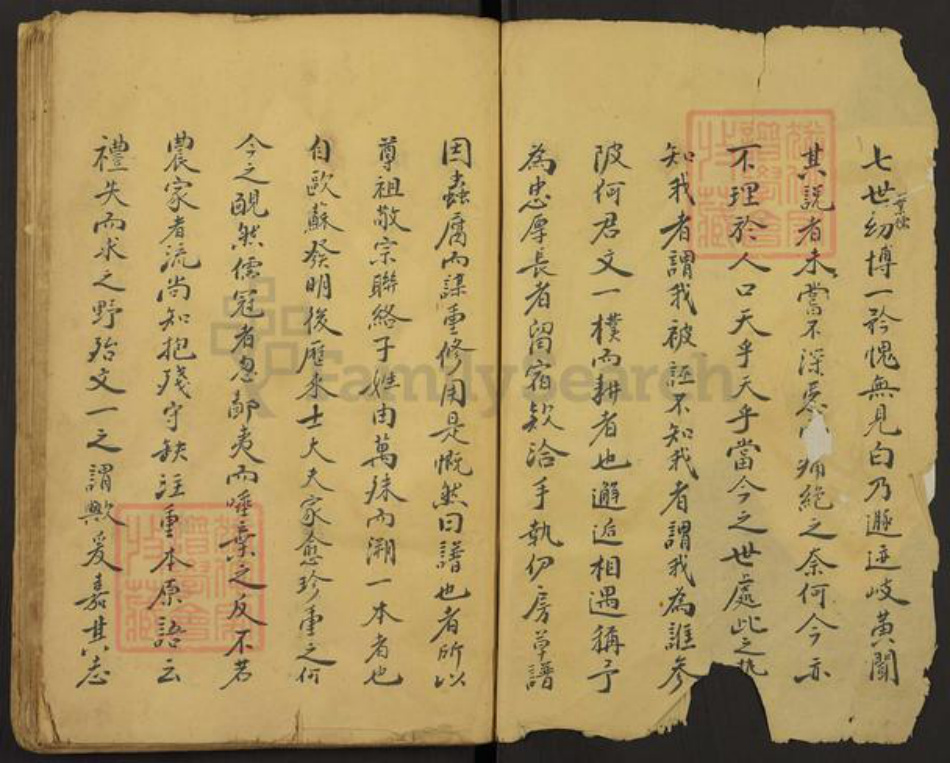 七世幼博一衿愧無見白乃遯迹岐黃聞
其說者未嘗不深 痛絕之奈何今亦
不理於人口天乎天乎當今之世處此之
知我者謂我被誣不知我者謂我為誰參
陂何君文一樸而耕者也邂逅相遇稱予
為忠厚長者留宿欵洽手執伊房草譜
因蟲腐而謀重修用是慨然曰譜也者所以
尊祖敬宗聯絡子姓由萬殊而溯一本者也
自歐蘇發明後歷來士大夫家愈珍重之何
今之靦然儒冠者忽鄙夷而唾棄之反不若
農家者流尚知抱殘守缺注重本原語云
禮失而求之野殆文一之謂歟爰嘉其志
FamilySearch